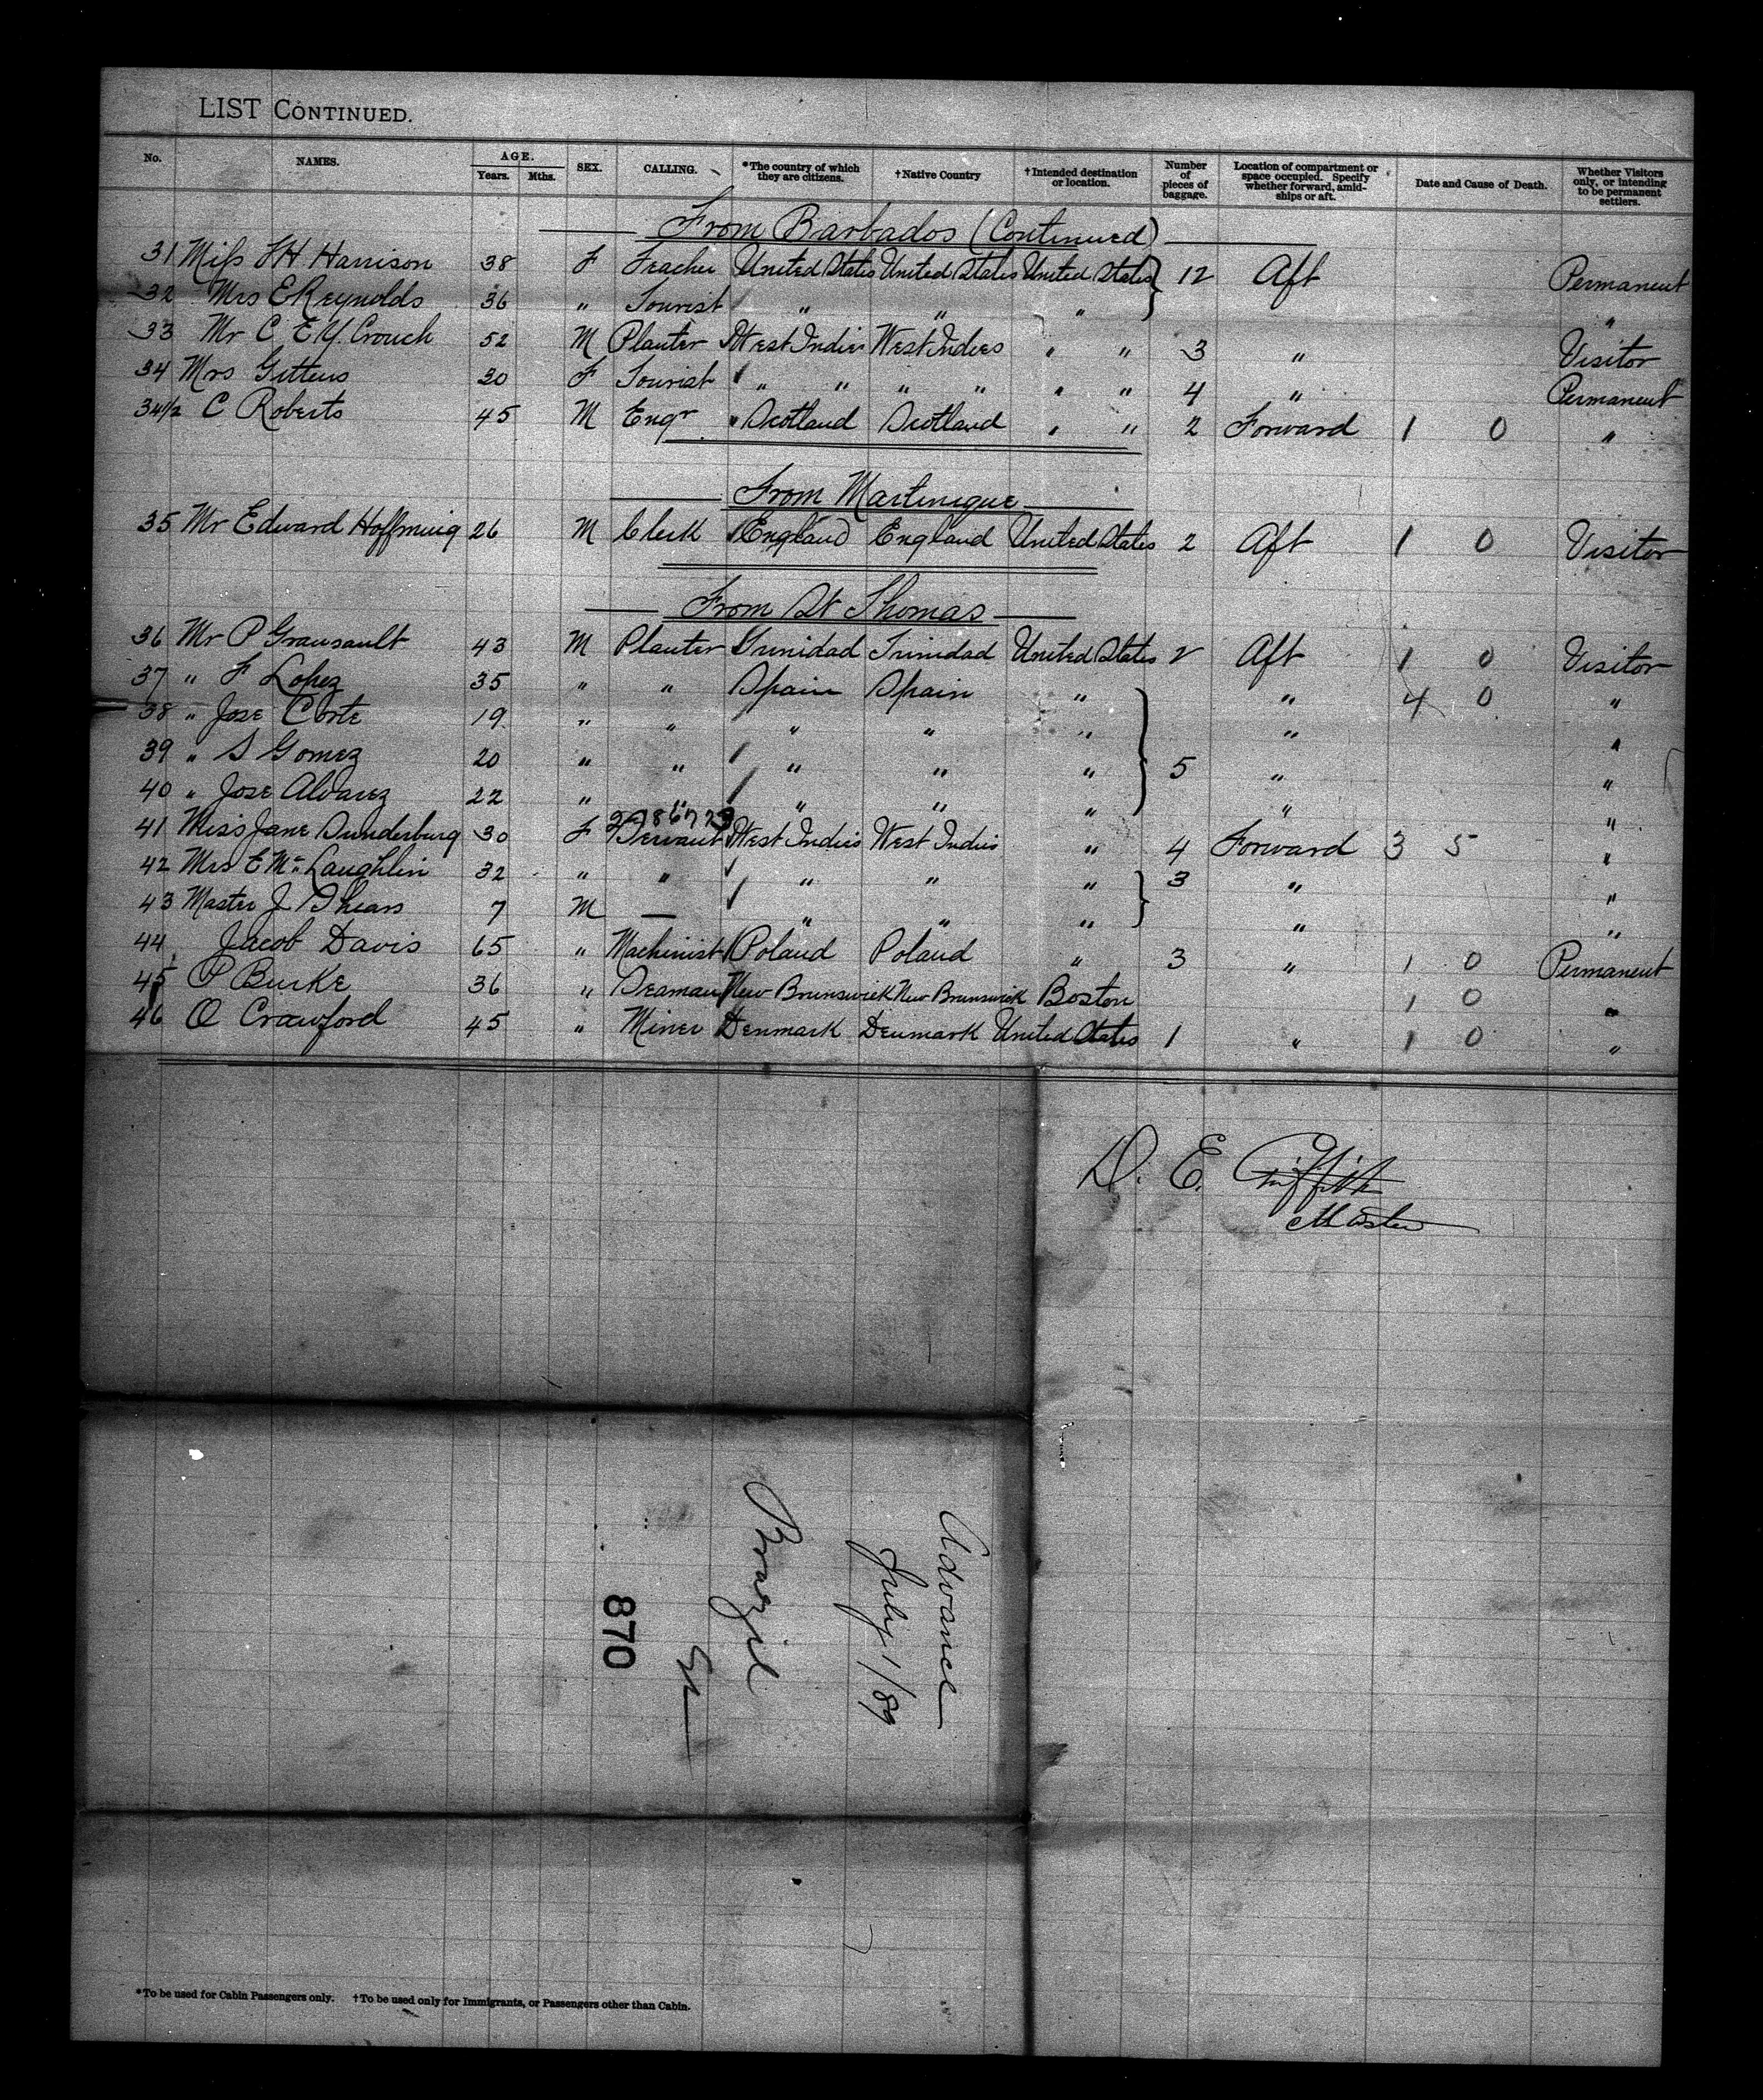 LIST CONTINUED.
No. NAMES. AGE. Years. Mths. SEX. CALLING. *The country of which they are citizens. †Native Country †Intended destination or location. Number of pieces of baggage. Location of compartment or space occupied. Specify whether forward, amidships or aft. Date and Cause of Death. Whether Visitors only, or intending to be permanent settlers.
From Barbados (Continued)
31 Miss H Harrison 38 F Teacher United States United States United States 12 Aft Permanent
32 Mrs E Reynolds 36 " Tourist " " " "
33 Mr C E Y. Crouch 52 M Planter West Indies West Indies " " 3 " Visitor
34 Mrs Gittens 30 F Tourist " " " " " " 4 " Permanent
34½ C Roberts 45 M Engr Scotland Scotland " " 2 Forward 1 0 "
From Martinique
35 Mr Edward 26 M Clerk England England United States 2 Aft 1 0 Visitor
From St Thomas
36 Mr P Gransault 43 M Planter Trinidad Trinidad United States 2 Aft 1 0 Visitor
37 " F Lopez 35 " " Spain Spain " " 4 0 "
38 " Jose Corte 19 " " " " " " "
39 " S Gomez 20 " " " " " 5 " "
40 " Jose Alvarez 22 " " " " " " "
41 Miss Jane Dunderburg 30 F Servant West Indies West Indies " 4 Forward 3 5 "
42 Mrs E McLaughlin 32 " " " " " 3 " "
43 Master J 7 M — " " " " "
44 Jacob Davis 65 " Machinist Poland Poland " 3 " 1 0 Permanent
45 P Burke 36 " Seaman New Brunswick New Brunswick Boston 1 0 "
46 O Crawford 45 " Miner Denmark Denmark United States 1 " 1 0 "
D. E. Griffith
Master
Advance
July 1/89
Brazil
870
*To be used for Cabin Passengers only. †To be used only for Immigrants, or Passengers other than Cabin.